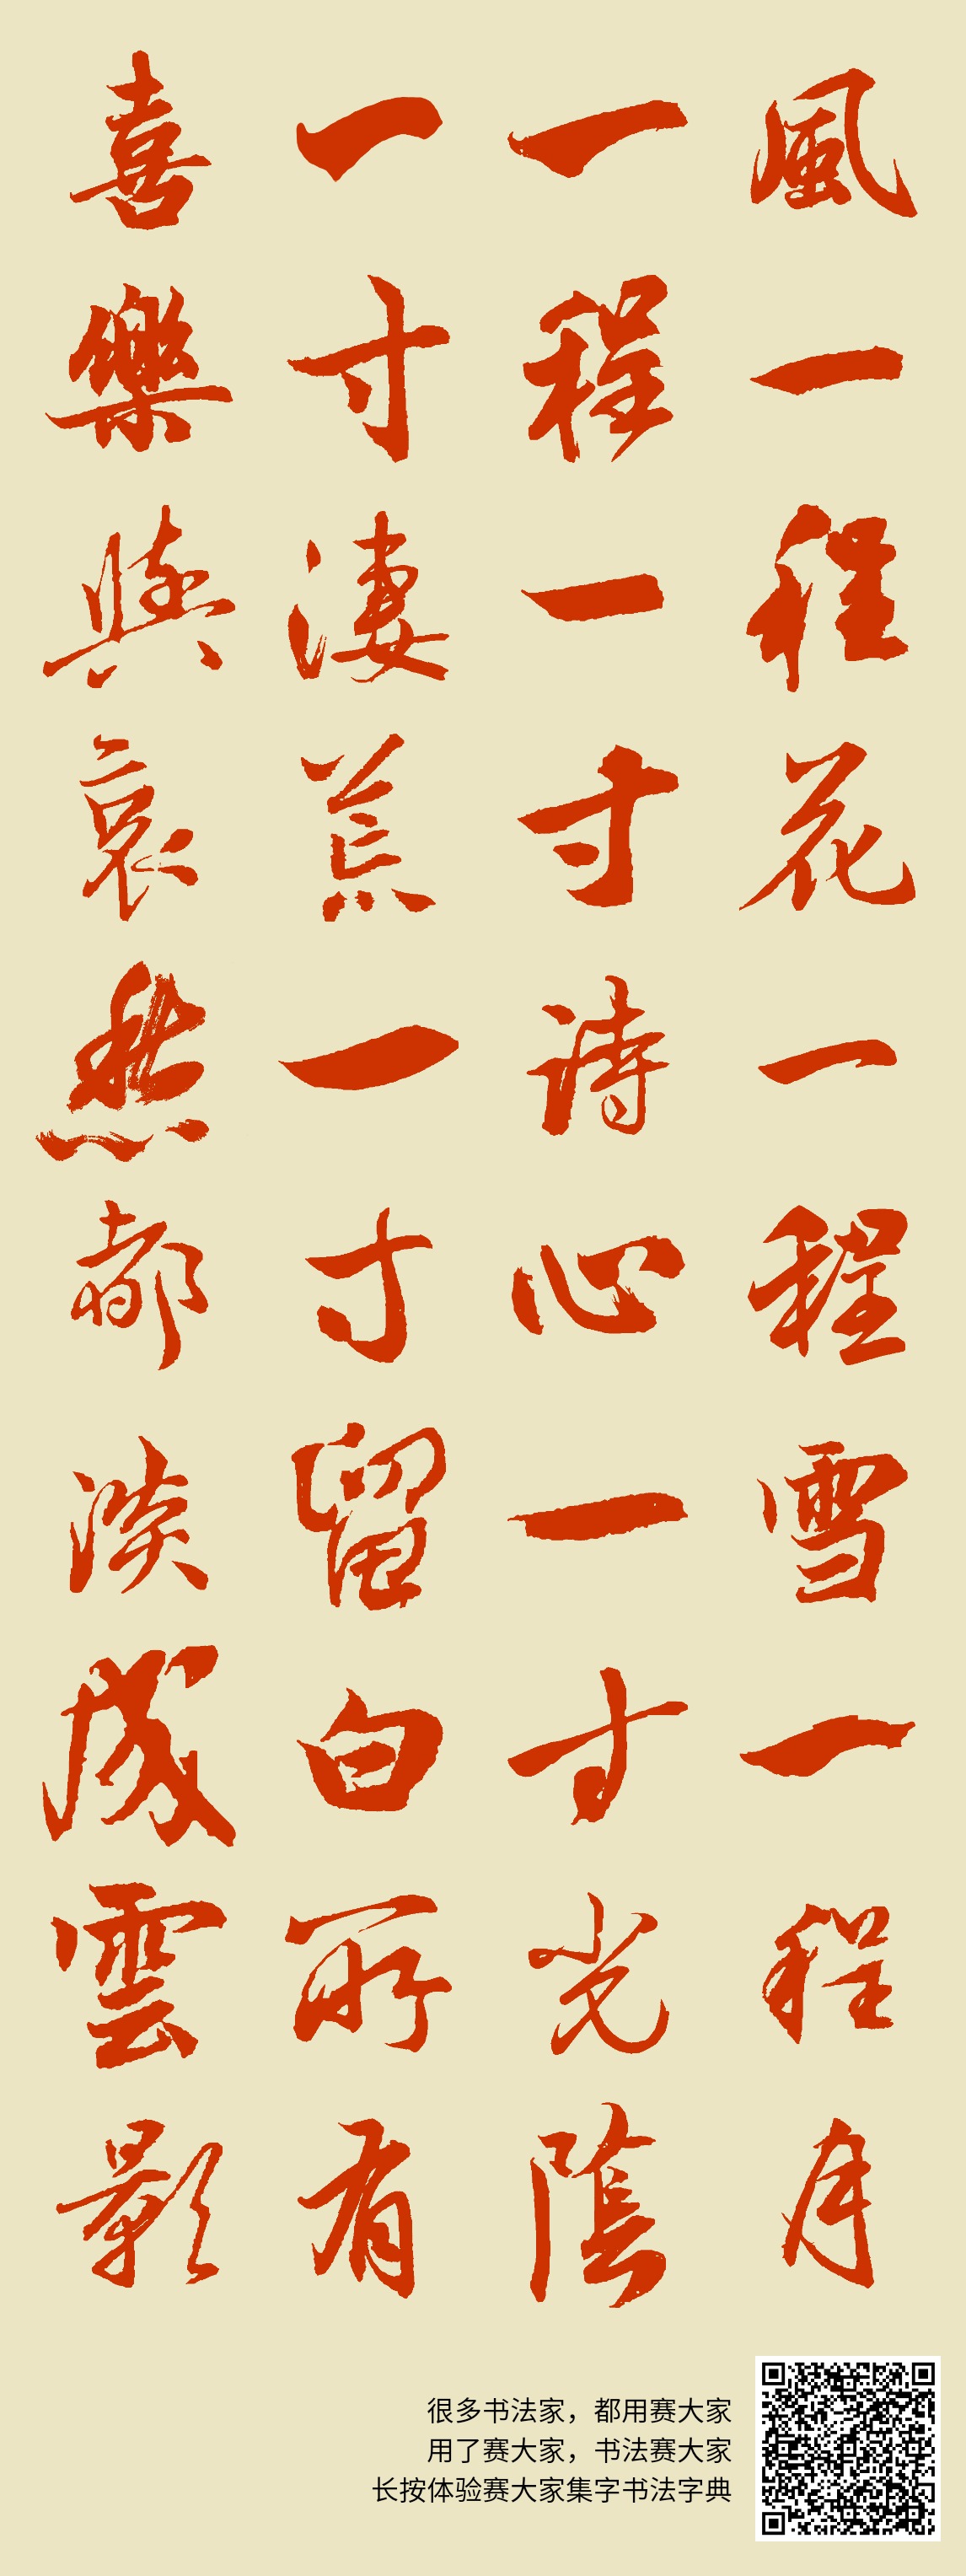 風一程花一程雪一程月
一程一寸詩心一寸光陰
一寸凄荒一寸留白所有
喜樂與哀愁都淡成雲影
很多书法家，都用赛大家
用了赛大家，书法赛大家
长按体验赛大家集字书法字典